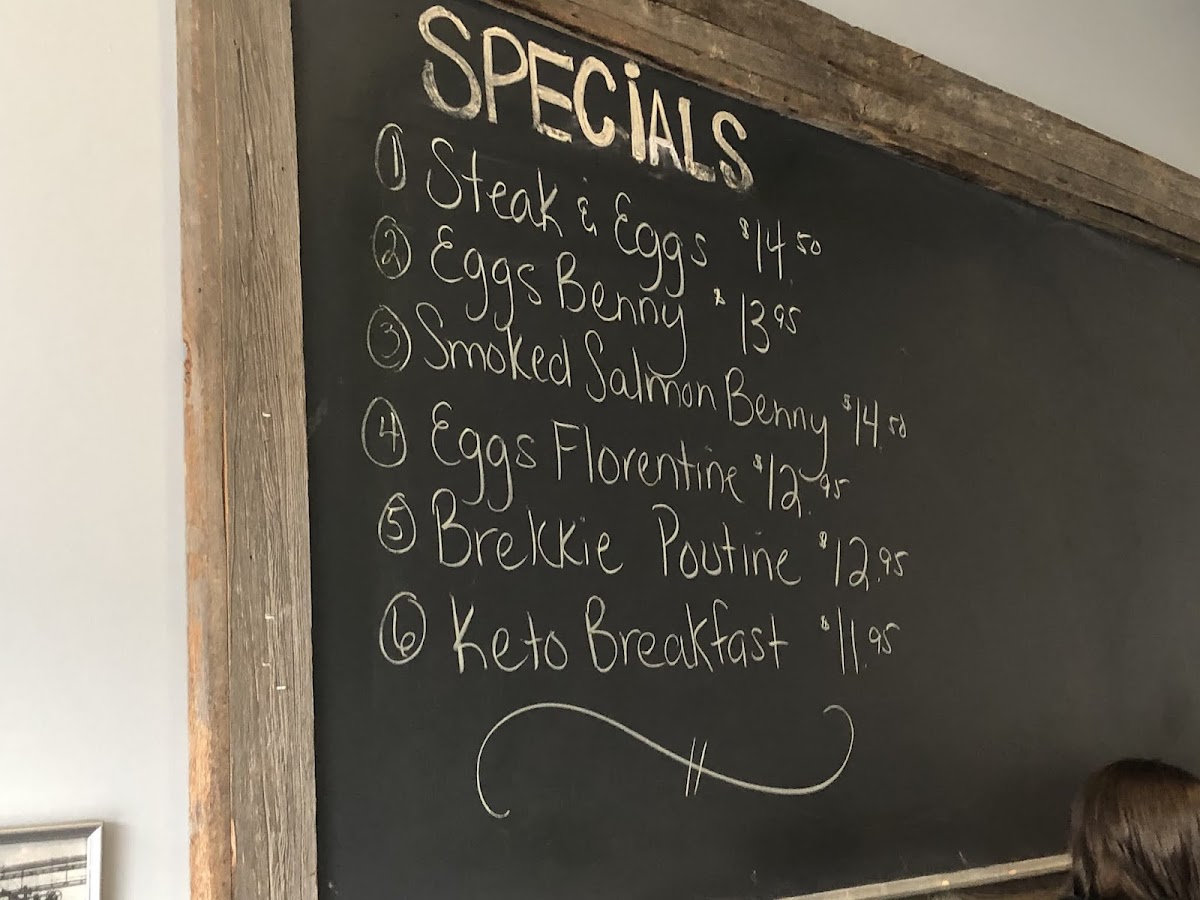 SPECiALS
① Steak & Eggs $14.50
② Eggs Benny $13 95
③ Smoked Salmon Benny $14.50
④ Eggs Florentine $12.95
⑤ Brekkie Poutine $12.95
⑥ Keto Breakfast $11.95